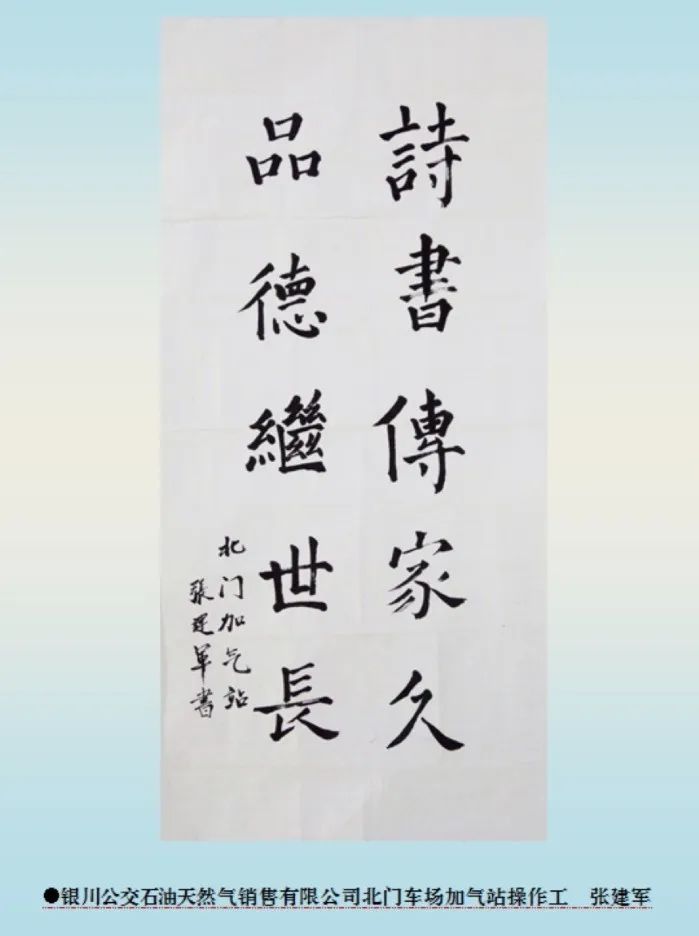 詩書傳家久
品德繼世長
北门加气站
張建軍書
●银川公交石油天然气销售有限公司北门车场加气站操作工　张建军